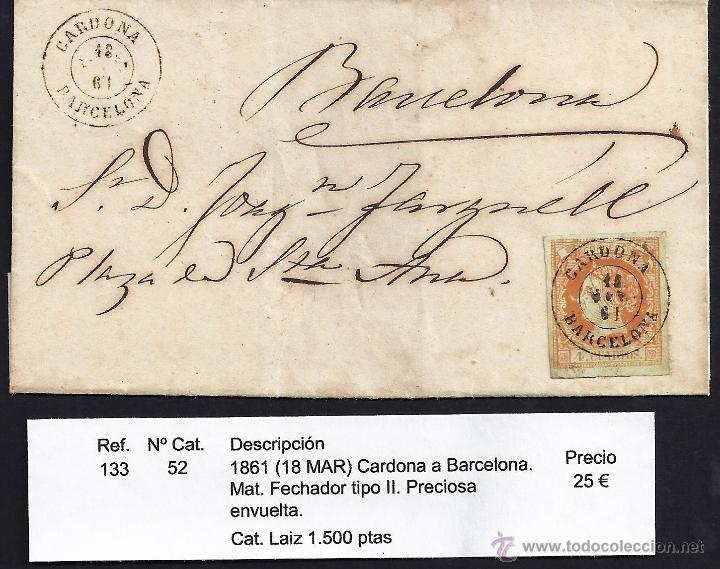 CARDONA
18
61
BARCELONA
Barcelona
Sr. D. Joaqn
Plaza de Sta Ana.
CARDONA
18
MAR
61
BARCELONA
4 CUARTOS.
Ref. Nº Cat. Descripción Precio
133 52 1861 (18 MAR) Cardona a Barcelona. 25 €
Mat. Fechador tipo II. Preciosa
envuelta.
Cat. Laiz 1.500 ptas
www.todocoleccion.net